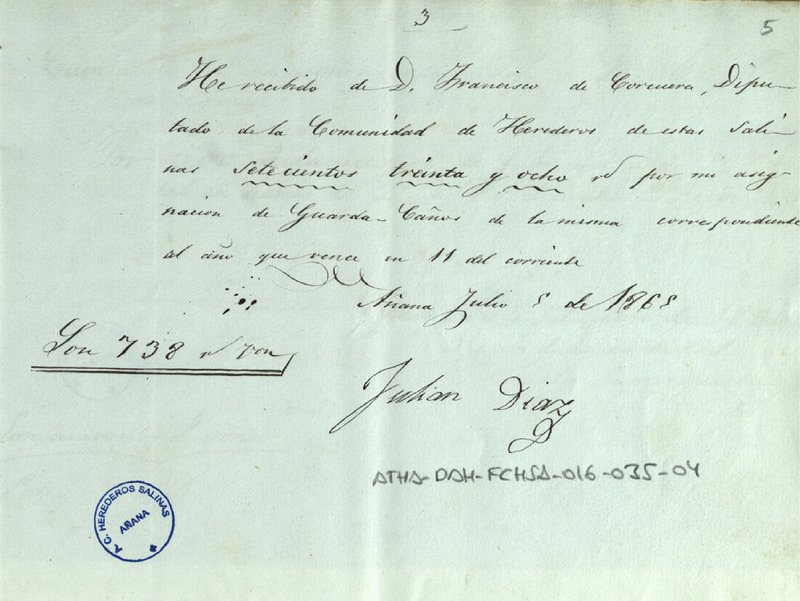 3
5
He recibido de D. Francisco de Corcuera, Dipu-
tado de la Comunidad de Herederos de estas Sali-
nas setecientos treinta y ocho rs por mi asig-
nacion de Guarda-Caños de la misma correspondiente
al año que vence en 11 del corriente
Añana Julio 8 de 1868
Son 738 rs von
Julian Diaz
ATHA-DAH-FCHSA-016-035-04
A. C. HEREDEROS SALINAS
AÑANA